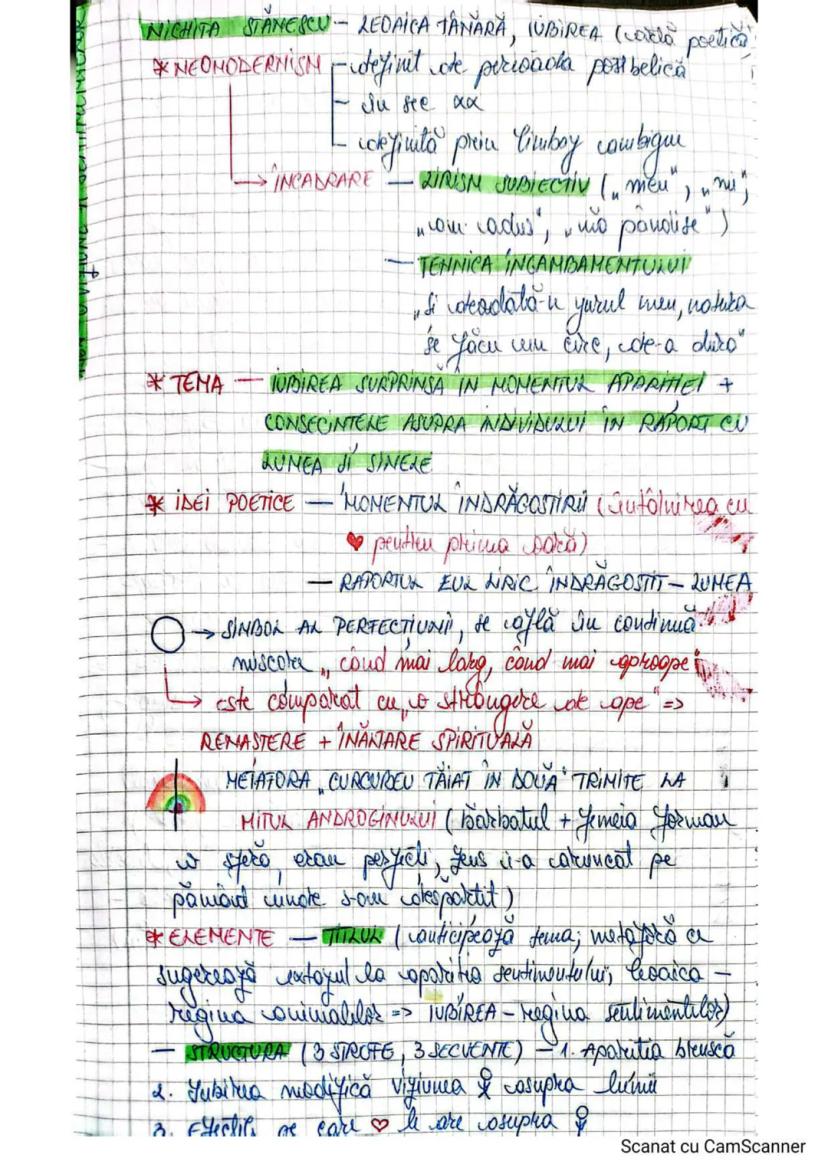 NICHITA STĂNESCU – LEOAICA TÂNĂRĂ, IUBIREA (artă poetică)
* NEOMODERNISM – definit de perioada postbelică
– în sec XX
– definită prin limbaj ambiguu
→ ÎNCADRARE – LIRISM SUBIECTIV („meu”, „mi”,
„am adus”, „mă pândise”)
– TEHNICA INGAMBAMENTULUI
„Și deodată-n jurul meu, natura
se făcu un cerc, de-a dura”
* TEMA – IUBIREA SURPRINSĂ ÎN MOMENTUL APARIȚIEI +
CONSECINȚELE ASUPRA INDIVIDULUI ÎN RAPORT CU
LUMEA ȘI SINELE
* IDEI POETICE – MOMENTUL ÎNDRĂGOSTIRII (întâlnirea cu
♥ pentru prima dată)
– RAPORTUL EUL LIRIC ÎNDRĂGOSTIT – LUMEA
→ SIMBOL AL PERFECȚIUNII, se află în continuă
miscare „când mai larg, când mai aproape”
→ este comparat cu „o strângere de ape” =>
RENASTERE + ÎNĂLȚARE SPIRITUALĂ
METAFORA „CURCUBEU TĂIAT ÎN DOUĂ” TRIMITE LA
MITUL ANDROGINULUI (bărbatul + femeia formau
o sferă, erau perfecți, Zeus i-a aruncat pe
pământ unde s-au despărțit)
* ELEMENTE – TITLUL (anticipează tema; metaforă ce
sugerează extazul la apariția sentimentului; leoaica –
regina animalelor => IUBIREA – regina sentimentelor)
– STRUCTURA (3 STROFE, 3 SECVENȚE) – 1. Apariția bruscă
2. Iubirea modifică viziunea asupra lumii
3. Efectele pe care ♥ le are asupra
Scanat cu CamScanner